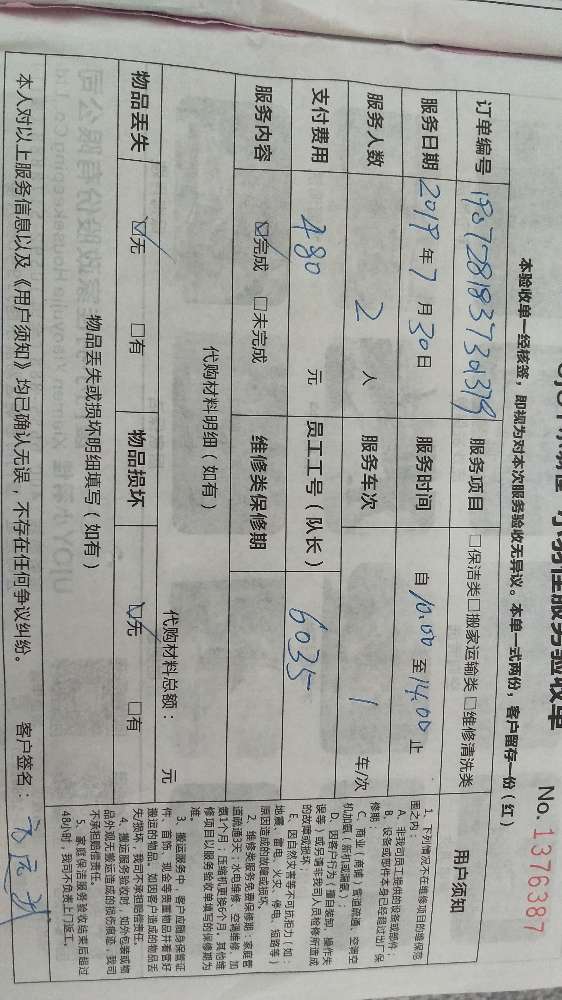 小易佳服务验收单
No. 1376387
本验收单一经核签，即视为对本次服务验收无异议。本单一式两份，客户留存一份（红）
订单编号 服务项目 □保洁类□搬家运输类□维修清洗类
服务日期 2019 年 7 月 30 日 服务时间 自 10:00 至 14:00 止
服务人数 2 人 服务车次 1 车/次
支付费用 480 元 员工工号（队长） 6035
服务内容 ☑完成 □未完成 维修类保修期
代购材料明细（如有） 代购材料总额： 元
物品丢失 ☑无 □有 物品损坏 ☑无 □有
物品丢失或损坏明细填写（如有）
本人对以上服务信息以及《用户须知》均已确认无误，不存在任何争议纠纷。 客户签名：
用户须知
1、下列情况不在维修项目的维保范
围之内：
A、非我司员工提供的设备或部件；
B、设备或部件本身已经超过出厂保
修期；
C、商业（商铺）管道疏通、空调空
机加氟（新机或清氟）；
D、因客户行为（擅自装卸、操作失
误等）或另请非我司人员检修所造成
的故障或损坏；
E、因自然灾害等不可抗拒力（如：
地震、雷电、火灾、停电、短路等）
原因造成的故障或损坏。
2、维修类服务免费保修期：家庭管
道疏通7天；水电维修、空调维修、加
氟1个月；压缩机更换6个月，其他维
修项目以服务验收单填写的保修期为
准。
3、搬运服务中，客户应随身保管证
件、首饰、现金等贵重物品并看管好
搬运的物品。如因客户造成的物品丢
失/损坏，我司不承担赔偿责任。
4、搬运服务验收时，如外包装或物
品外观无搬运造成的损伤痕迹，我司
不承担赔偿责任。
5、家庭保洁服务验收结束后超过
48小时，我司不负责上门返工。